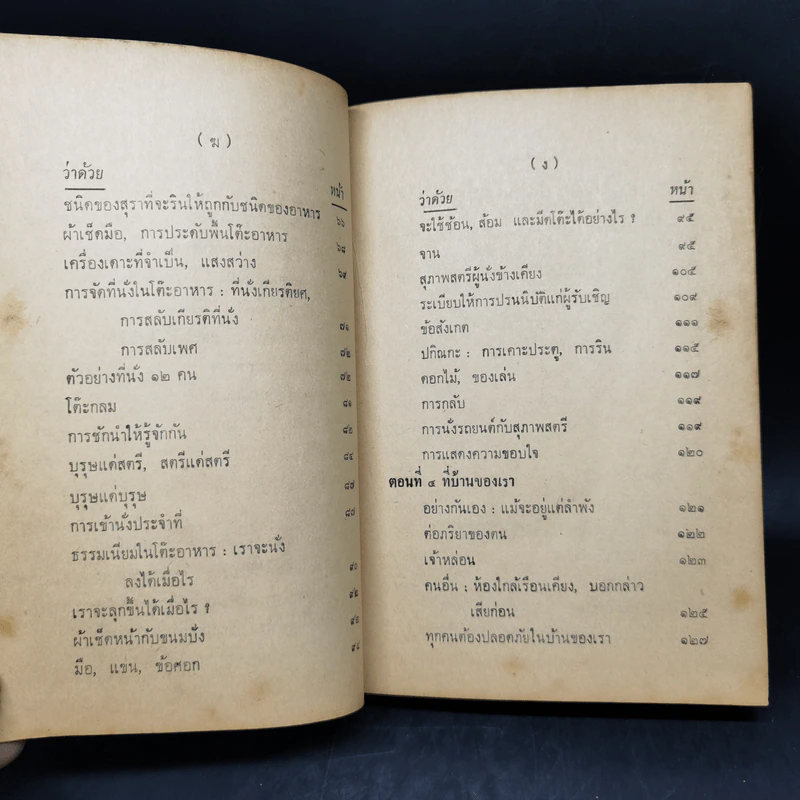 ( ฆ )
ว่าด้วย
หน้า
ชนิดของสุราที่จะรินให้ถูกกับชนิดของอาหาร ๖๖
ผ้าเช็ดมือ, การประดับพื้นโต๊ะอาหาร ๖๘
เครื่องเคาะที่จำเป็น, แสงสว่าง ๖๙
การจัดที่นั่งในโต๊ะอาหาร : ที่นั่งเกียรติยศ,
การสลับเกียรติที่นั่ง ๗๑
การสลับเพศ ๗๒
ตัวอย่างที่นั่ง ๑๒ คน ๗๒
โต๊ะกลม ๘๑
การชักนำให้รู้จักกัน ๘๒
บุรุษแด่สตรี, สตรีแด่สตรี ๘๔
บุรุษแด่บุรุษ ๘๗
การเข้านั่งประจำที่ ๘๘
ธรรมเนียมในโต๊ะอาหาร : เราจะนั่ง
ลงได้เมื่อไร ๙๐
เราจะลุกขึ้นได้เมื่อไร ? ๙๒
ผ้าเช็ดหน้ากับขนมปัง ๙๒
มือ, แขน, ข้อศอก ๙๔
( ง )
ว่าด้วย หน้า
จะใช้ช้อน, ส้อม และมีดโต๊ะได้อย่างไร ? ๙๕
จาน ๙๕
สุภาพสตรีผู้นั่งข้างเคียง ๑๐๕
ระเบียบให้การปรนนิบัติแก่ผู้รับเชิญ ๑๐๙
ข้อสังเกต ๑๑๑
ปกิณกะ : การเคาะประตู, การริน ๑๑๕
ดอกไม้, ของเล่น ๑๑๗
การกลับ ๑๑๙
การนั่งรถยนต์กับสุภาพสตรี ๑๑๙
การแสดงความขอบใจ ๑๒๐
ตอนที่ ๔ ที่บ้านของเรา
อย่างกันเอง : แม้จะอยู่แต่ลำพัง ๑๒๑
ต่อภริยาของตน ๑๒๒
เจ้าหล่อน ๑๒๓
คนอื่น : ห้องใกล้เรือนเคียง, บอกกล่าว
เสียก่อน ๑๒๕
ทุกคนต้องปลอดภัยในบ้านของเรา ๑๒๗